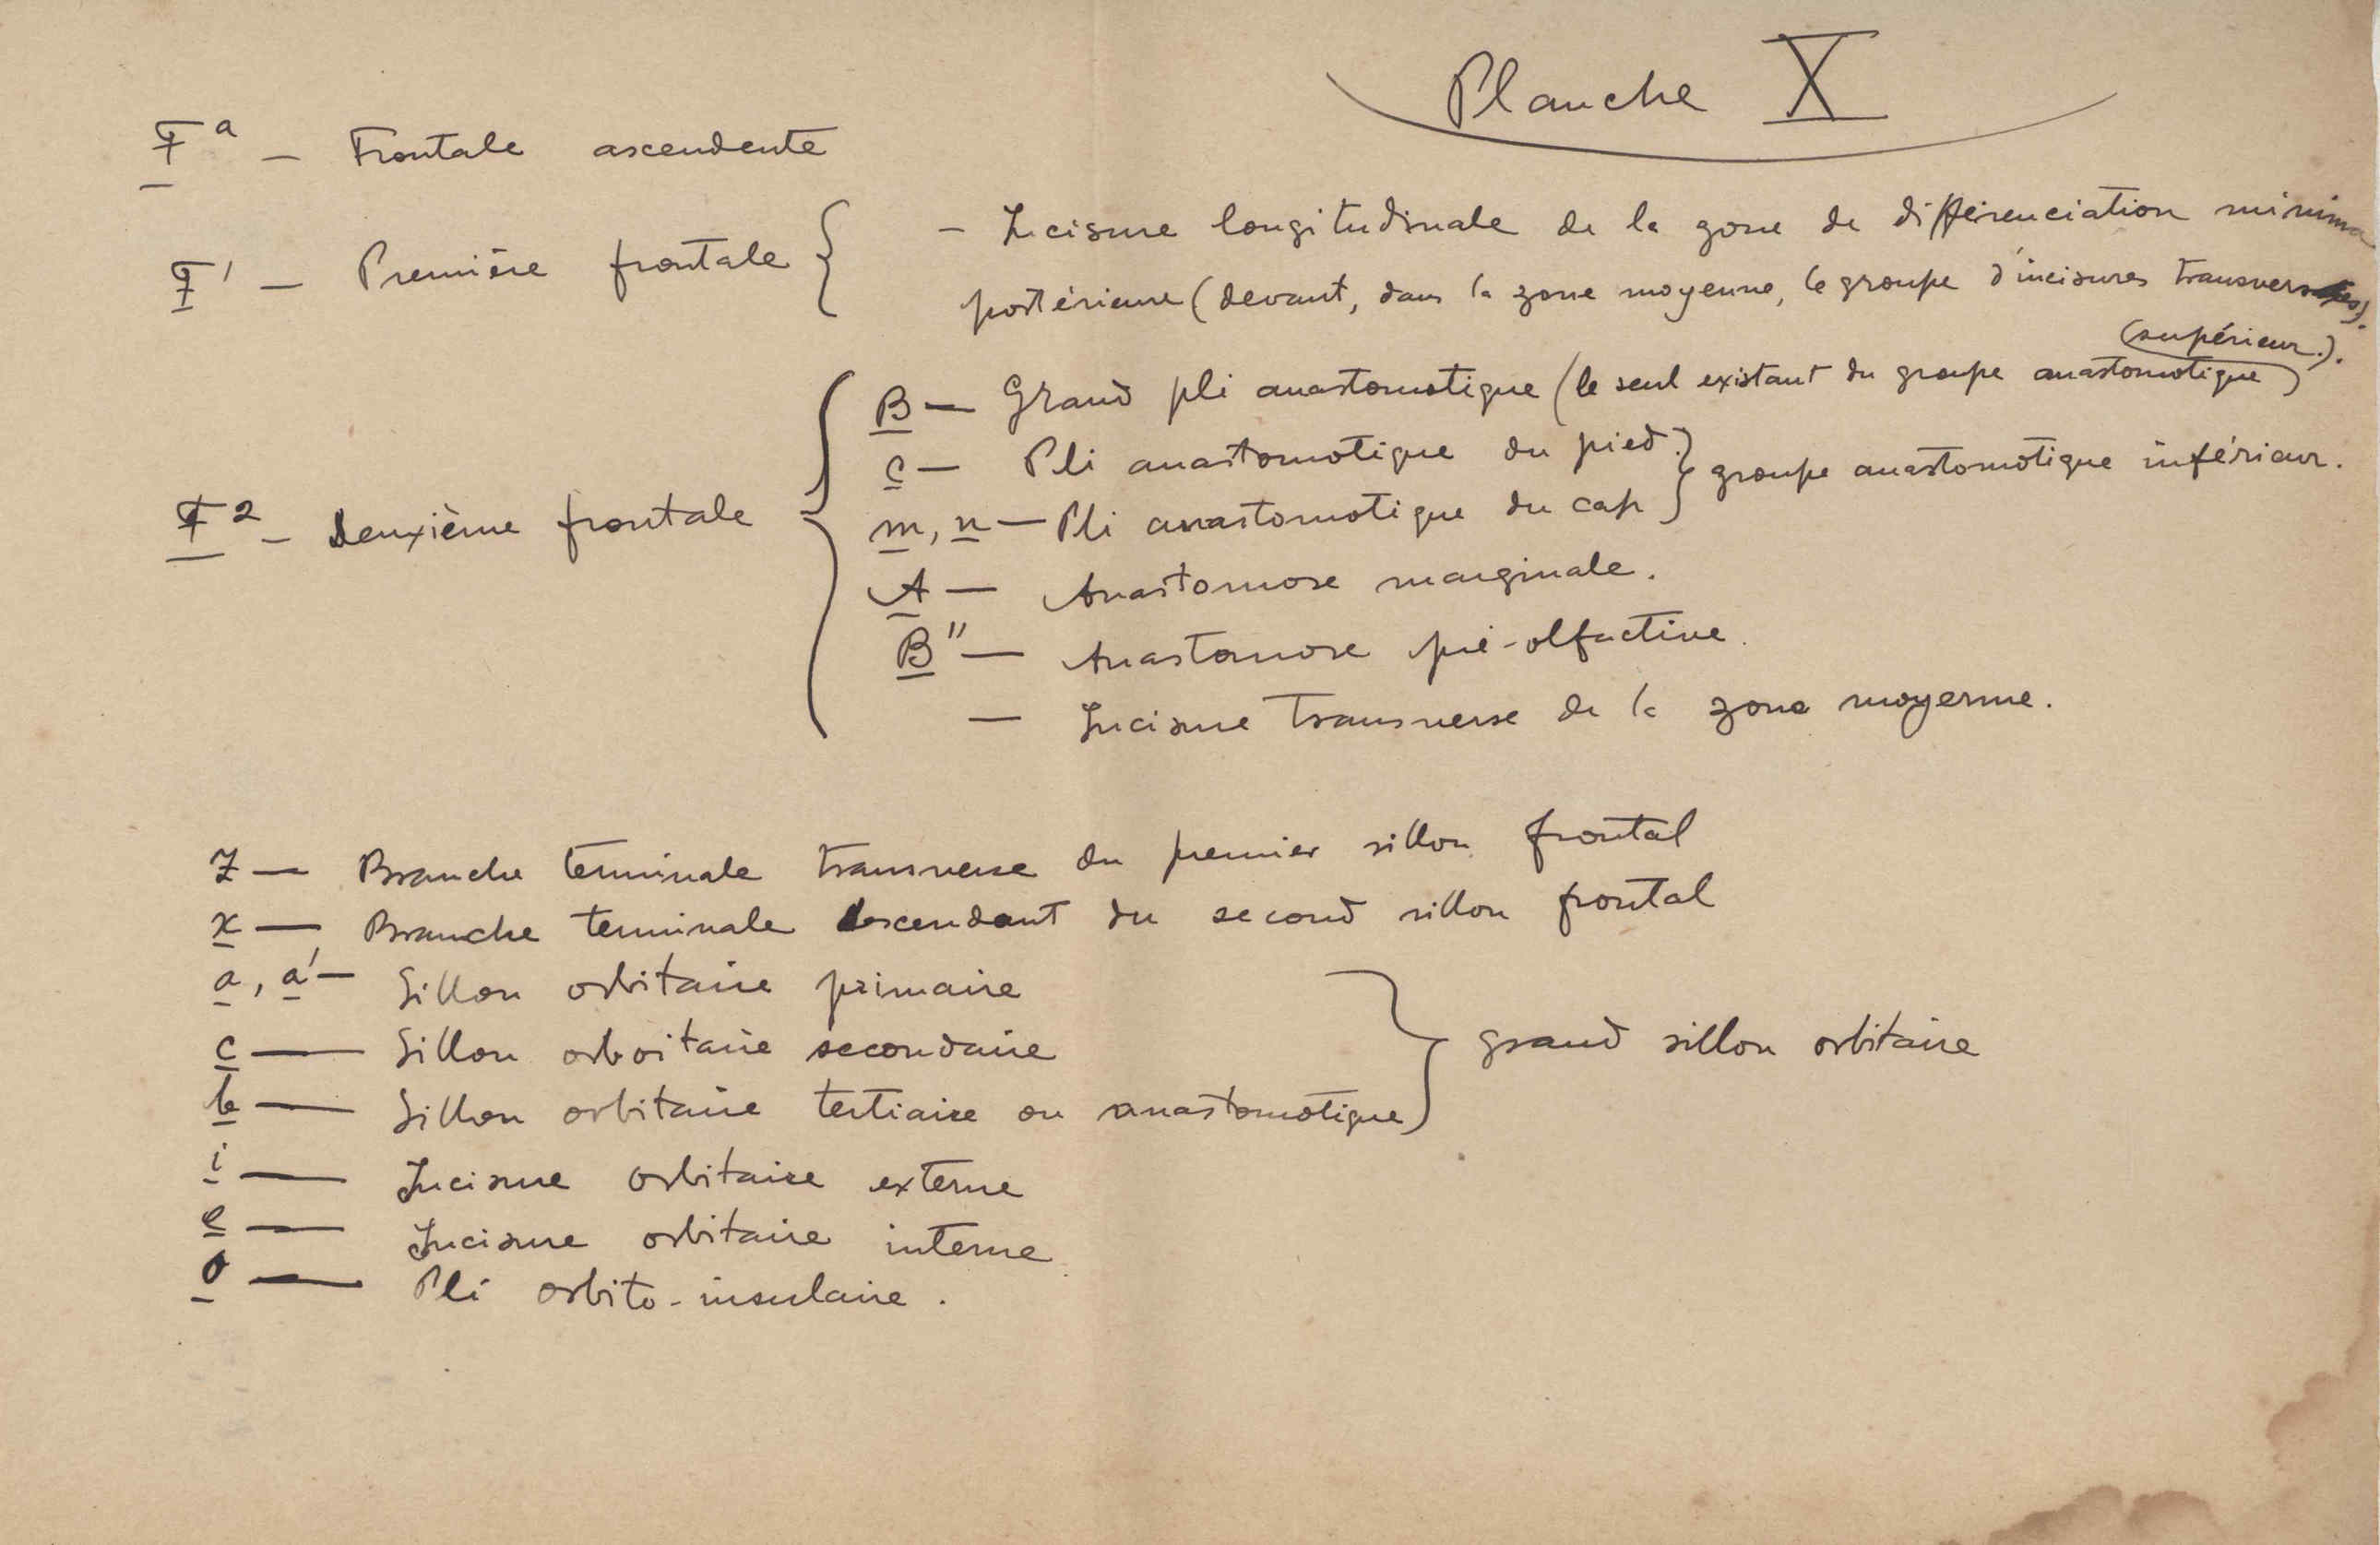 Planche X
F a — Frontale ascendente
F' — Première frontale {
— Incisure longitudinale de la zone de différenciation minima
postérieure (devant, dans la zone moyenne, le groupe d'incisures transverses).
F2 — Deuxième frontale {
(supérieur.).
B — Grand pli anastomotique (le seul existant du groupe anastomotique)
C — Pli anastomotique du pied.
m, n — Pli anastomotique du cap } groupe anastomotique inférieur.
A — Anastomose marginale.
B" — Anastomose pré-olfactive.
— Incisure transverse de la zone moyenne.
Z — Branche terminale transverse du premier sillon frontal
x — Branche terminale descendant du second sillon frontal
a, a' — Sillon orbitaire primaire
c — Sillon orboitaire secondaire
b — Sillon orbitaire tertiaire ou anastomotique } grand sillon orbitaire
i — Incisure orbitaire externe
e — Incisure orbitaire interne
o — Pli orbito-insulaire.